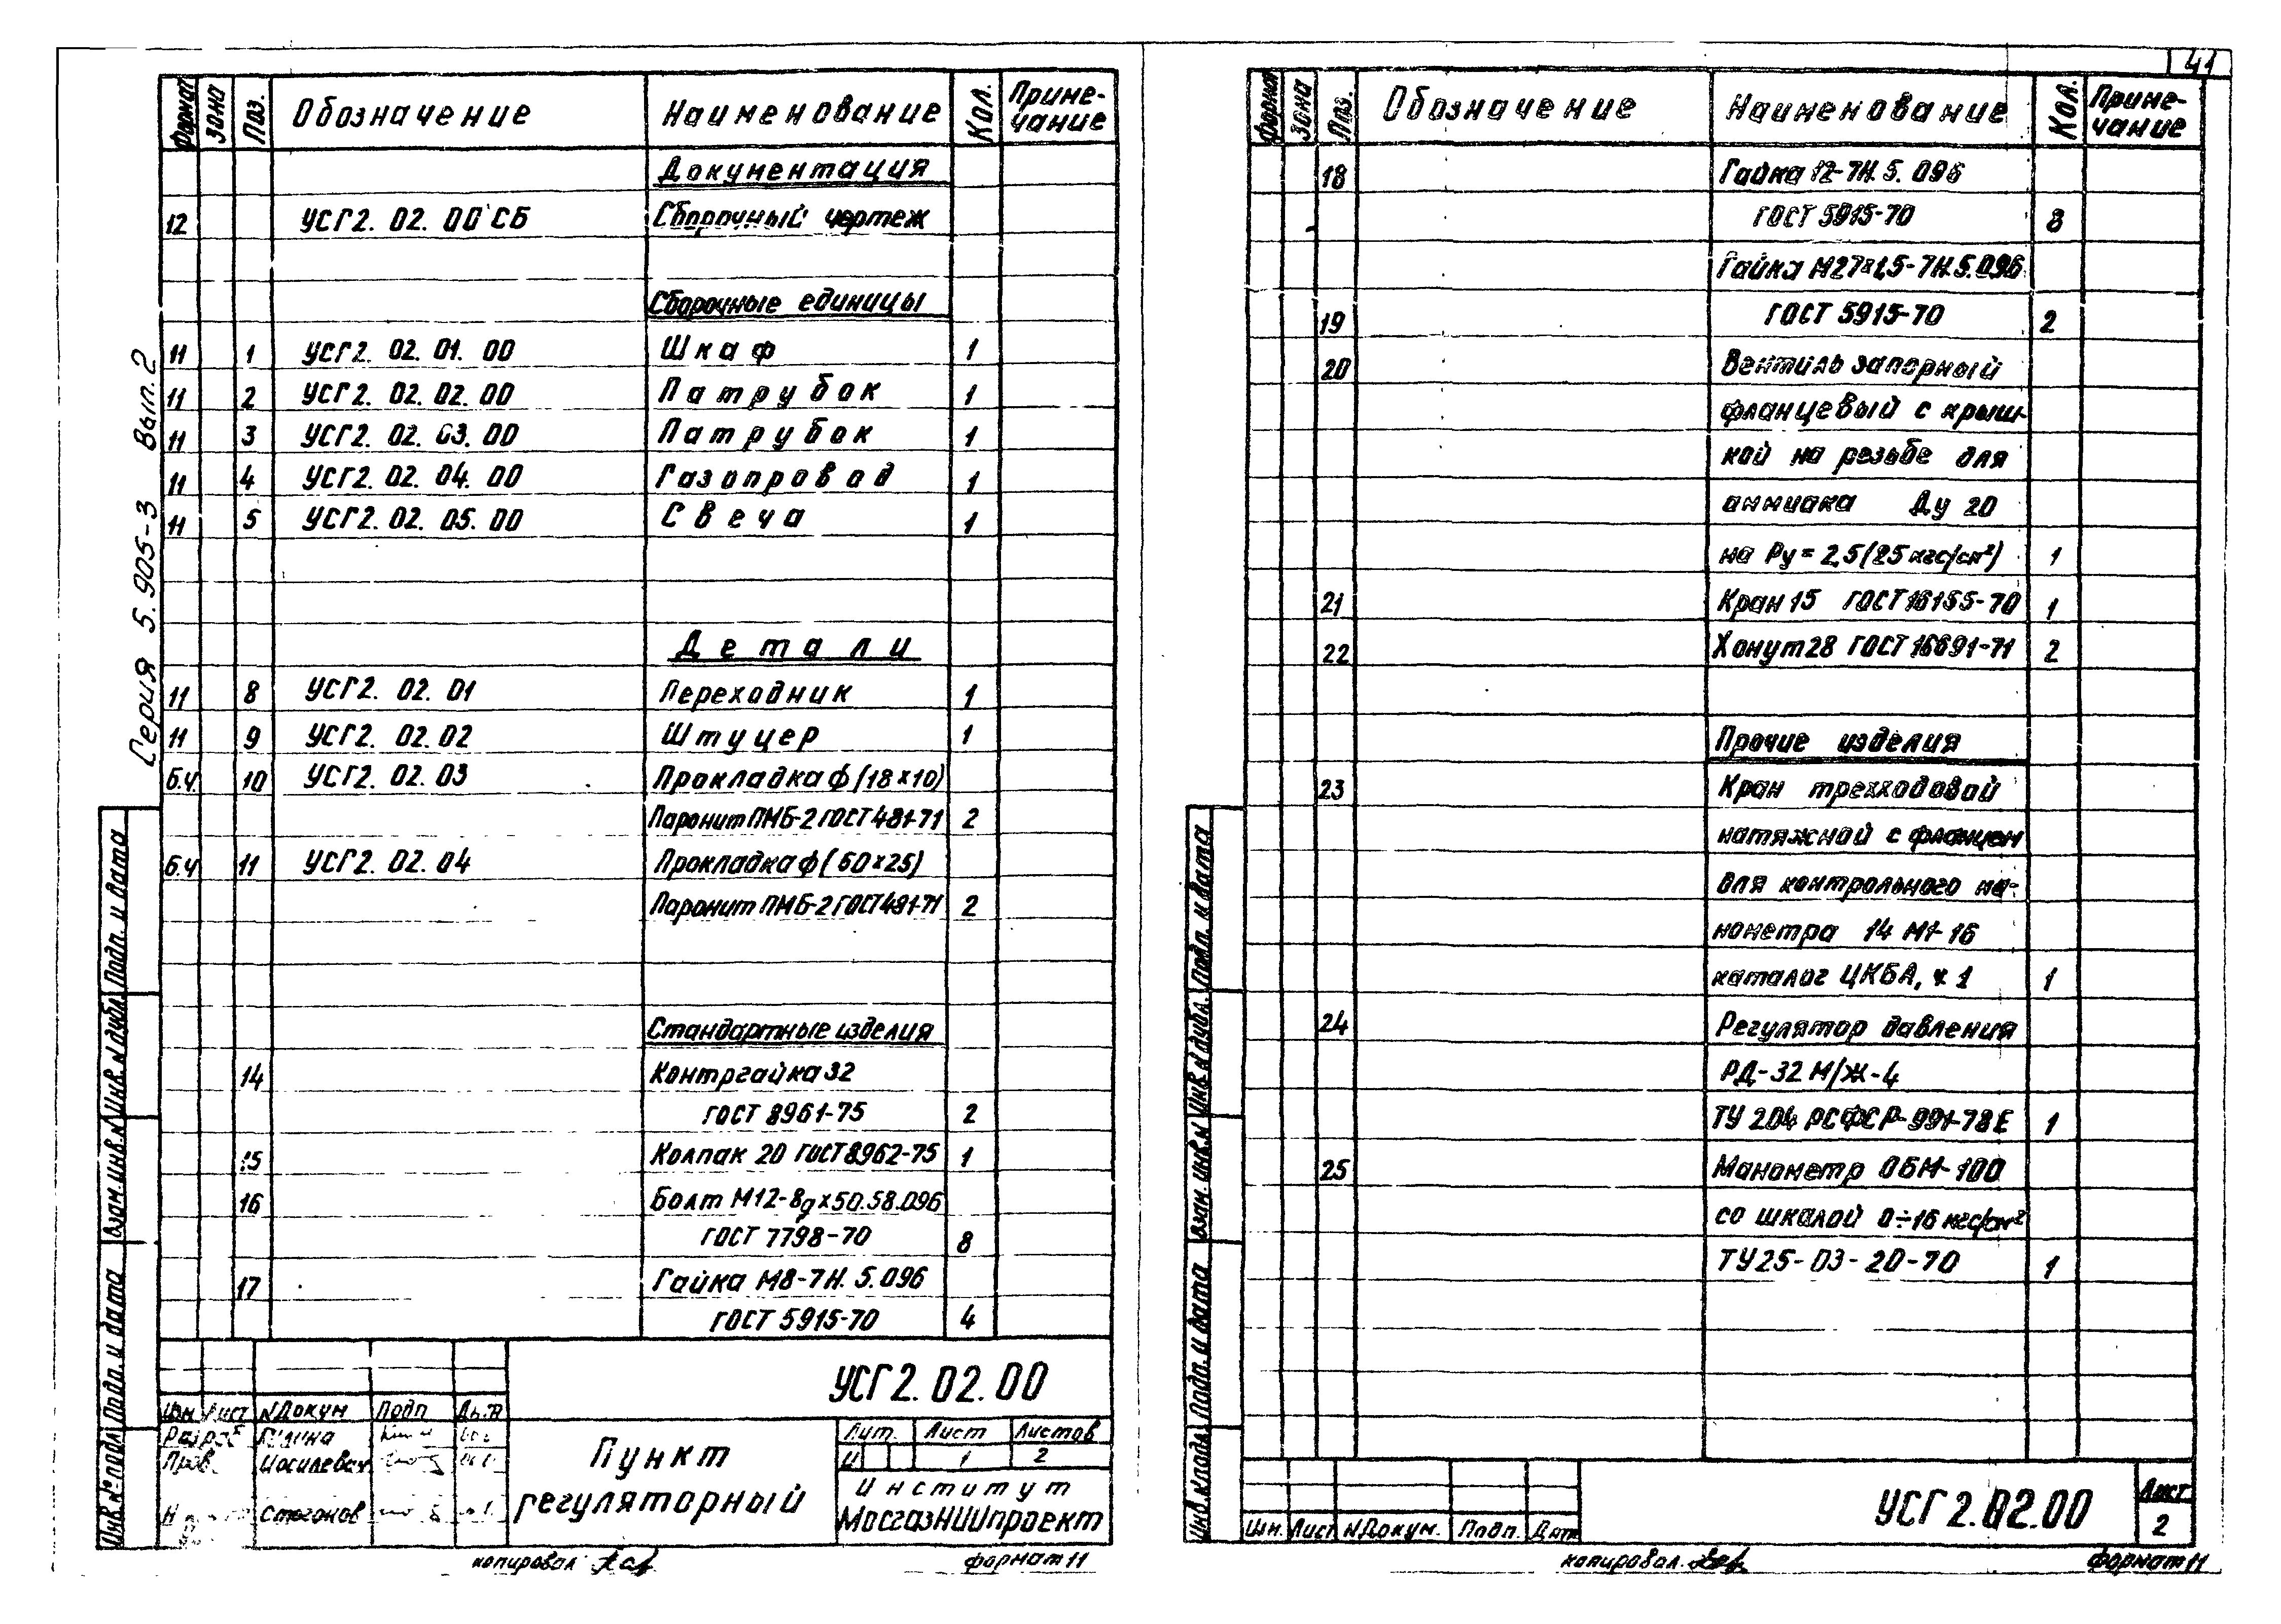 41
Серия 5.905-3 Вып.2
Формат Зона Поз. Обозначение Наименование Кол. Приме-
чание
Документация
12 УСГ2. 02. 00 СБ Сборочный чертеж
Сборочные единицы
11 1 УСГ2. 02. 01. 00 Шкаф 1
11 2 УСГ2. 02. 02. 00 Патрубок 1
11 3 УСГ2. 02. 03. 00 Патрубок 1
11 4 УСГ2. 02. 04. 00 Газопровод 1
11 5 УСГ2. 02. 05. 00 Свеча 1
Детали
11 8 УСГ2. 02. 01 Переходник 1
11 9 УСГ2. 02. 02 Штуцер 1
б.ч 10 УСГ2. 02. 03 Прокладка ф (18×10)
Паронит ПМБ-2 ГОСТ 481-71 2
б.ч 11 УСГ2. 02. 04 Прокладка ф (60×25)
Паронит ПМБ-2 ГОСТ 481-71 2
Стандартные изделия
14 Контргайка 32
ГОСТ 8961-75 2
15 Колпак 20 ГОСТ 8962-75 1
16 Болт М12-8g×50.58.096
ГОСТ 7798-70 8
17 Гайка М8-7Н.5.096
ГОСТ 5915-70 4
Инв.№ подл. Подп. и дата Взам.инв.№ Инв.№ дубл. Подп. и дата
УСГ2. 02. 00
Изм Лист №Докум Подп Дата
Разраб
Пров. Иосилевич
Н
Пункт
регуляторный
Лит. Лист Листов
И 1 2
Институт
МосгазНИИпроект
копировал
формат 11
Формат Зона Поз. Обозначение Наименование Кол. Приме-
чание
18 Гайка 12-7Н.5.096
ГОСТ 5915-70 8
Гайка М27×1,5-7Н.5.096
19 ГОСТ 5915-70 2
20 Вентиль запорный
фланцевый с крыш-
кой на резьбе для
аммиака Ду 20
на Ру = 2,5 (25 кгс/см²) 1
21 Кран 15 ГОСТ 16155-70 1
22 Хомут 28 ГОСТ 16691-71 2
Прочие изделия
23 Кран трехходовой
натяжной с фланцем
для контрольного ма-
нометра 14 М1-16
каталог ЦКБА, ч 1 1
24 Регулятор давления
РД-32 М/Ж-4
ТУ 204 РСФСР-991-78Е 1
25 Манометр ОБМ-100
со шкалой 0÷16 кгс/см²
ТУ25-03-20-70 1
Инв.№ подл. Подп. и дата Взам. инв.№ Инв.№ дубл. Подп. и дата
Изм. Лист №Докум. Подп. Дата
УСГ2.02.00
Лист
2
копировал.
формат 11